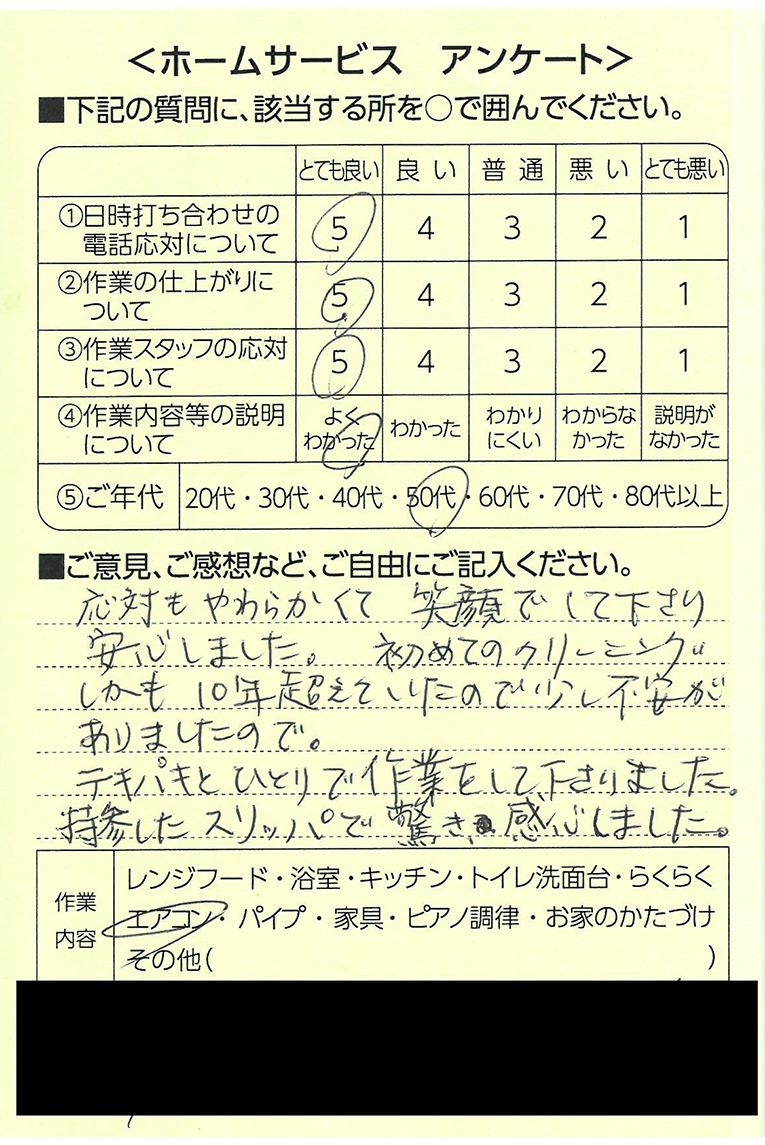 ＜ホームサービス　アンケート＞
■下記の質問に、該当する所を○で囲んでください。
とても良い 良い 普通 悪い とても悪い
①日時打ち合わせの
電話応対について 5 4 3 2 1
②作業の仕上がりに
ついて 5 4 3 2 1
③作業スタッフの応対
について 5 4 3 2 1
④作業内容等の説明
について よくわかった わかった わかりにくい わからなかった 説明がなかった
⑤ご年代 20代・30代・40代・50代・60代・70代・80代以上
■ご意見、ご感想など、ご自由にご記入ください。
応対もやわらかくて 笑顔でして下さり
安心しました。 初めてのクリーニング
しかも 10年超えていたので少し不安が
ありましたので。
テキパキとひとりで作業をして下さりました。
持参したスリッパで驚き、感心しました。
作業
内容
レンジフード・浴室・キッチン・トイレ洗面台・らくらく
エアコン・パイプ・家具・ピアノ調律・お家のかたづけ
その他( )